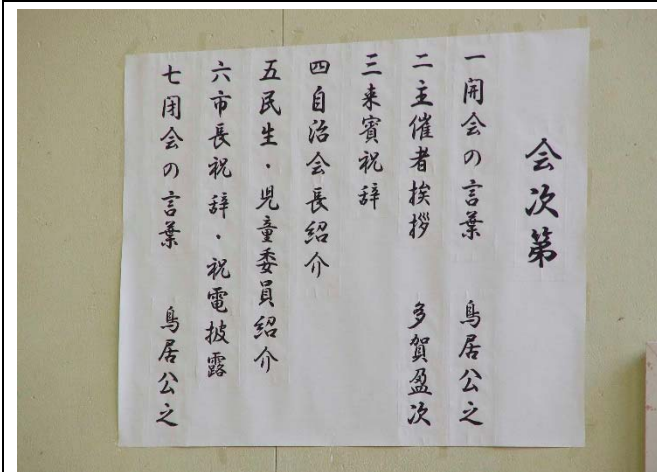 会次第
一開会の言葉 鳥居公之
二主催者挨拶 多賀盈次
三来賓祝辞
四自治会長紹介
五民生・児童委員紹介
六市長祝辞・祝電披露
七閉会の言葉 鳥居公之